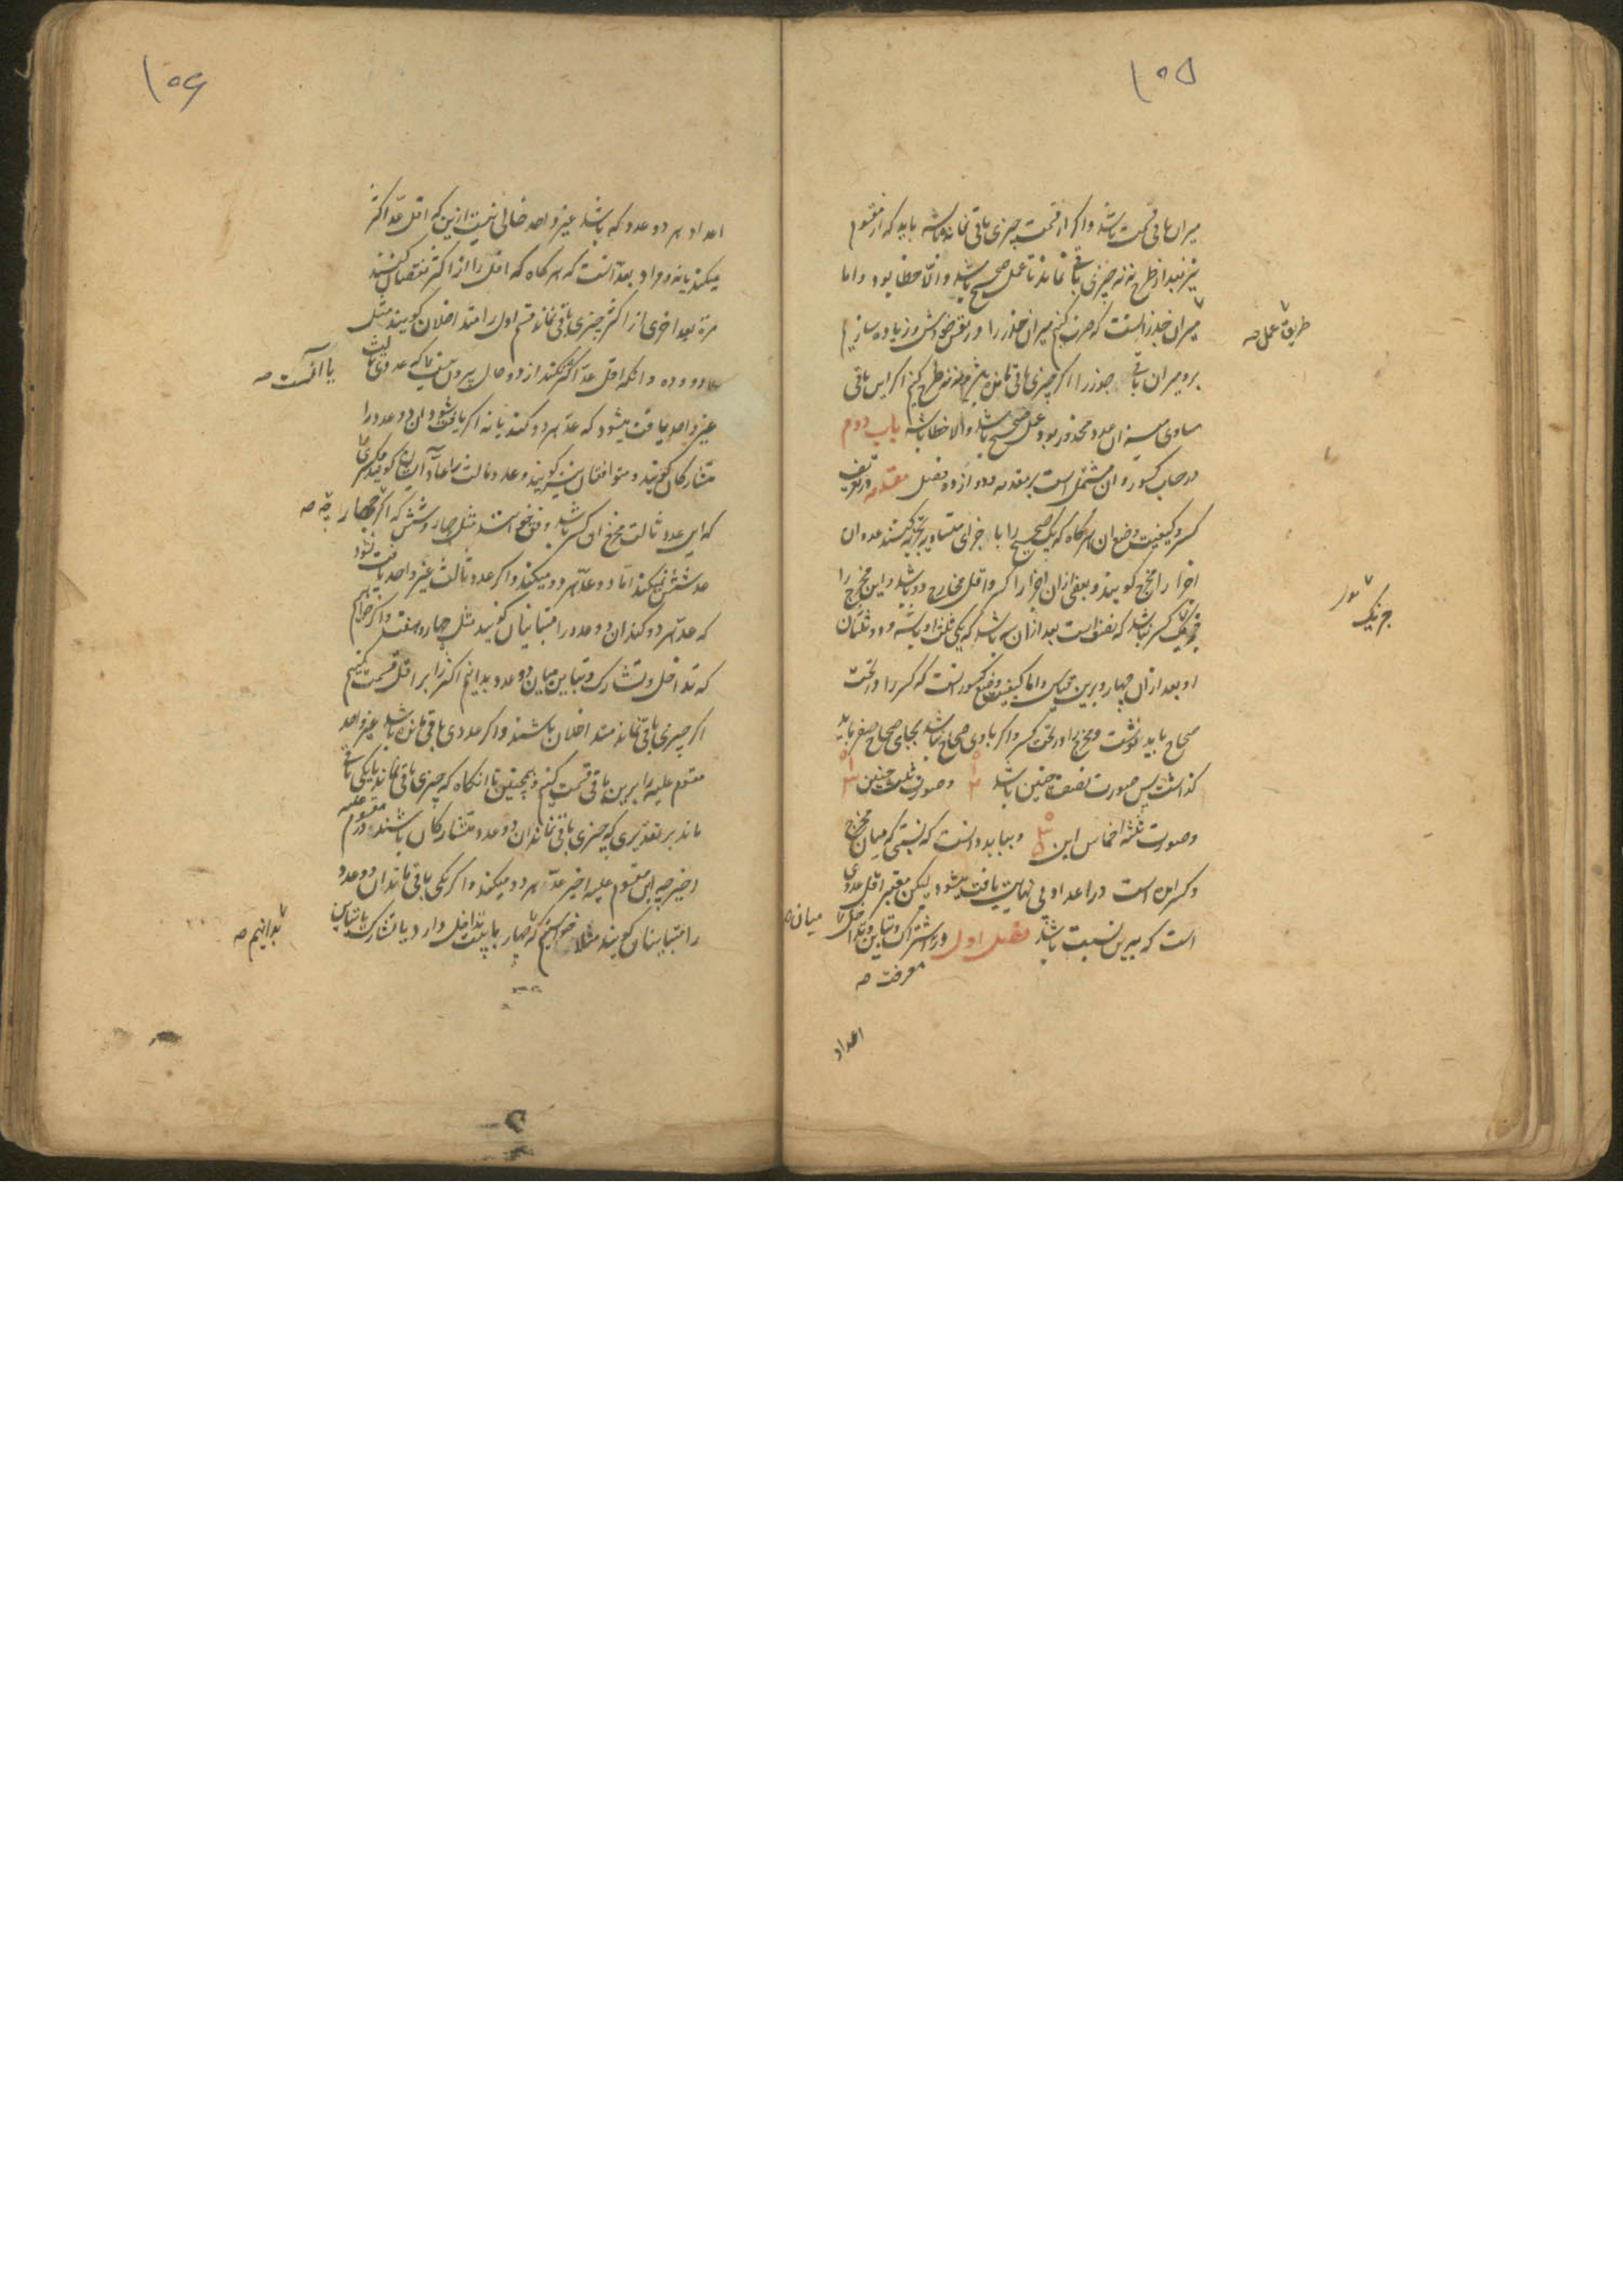 ۱۰۵
میزان باقی قسمت باشد و اگر از قسمت چیزی باقی نمانده باشد باید که از مقسوم
نیز بعد از طرح نه نه چیزی باقی نماند تا عمل صحیح باشد و الّا خطا بود و اما
میزان جذر آنست که ضرب کنیم میزان جذر را در نفس خودش و زیاده سازیم
بر و میزان باقی جذر را اگر چیزی باقی مانده باشد نه نه طرح کنیم اگر این باقی
مساوی میزان عدد مجذور بود عمل صحیح باشد والا خطا باشد باب دوم
در حساب کسور و ان مشتمل است بر مقدمه و دوازده فصل مقدمه در تعریف
کسر و کیفیت وضع ان هرگاه که یک صحیح را با جزای متساویه تجزیه کنند عدد ان
اجزا را مخرج گویند و بعضی ازان اجزا را کسر و اقل مخارج دو باشد و این مخرج را
یک کسر باشد که نصف است بعد ازان سه باشد که یکی ثلث او باشد و دو ثلثان
او بعد ازان چهار و برین قیاس و اما کیفیت وضع کسور انست که کسر را در تحت
صحاح باید نوشت و مخرج را در تحت کسر و اگر با وی صحاح نباشد بجای صحاح صفر باید
گذاشت پس صورت نصف چنین باشد ۰ ۱ ۲ وصورت ثلث چنین ۰ ۱ ۳
وصورت ثلثه اخماس این ۰ ۳ ۵ و بباید دانست که نسبتی که میان مخرج
و کسر است در اعداد بی نهایت یافت میشود لیکن معتبر اقل عددی
است که برین نسبت باشد فصل اول در اشتراک و تباین و تداخل میان
معرفت صه
طریق عمل صه
جز یک
اعداد
۱۰۶
اعداد هر دو عدد که باشد غیر واحد خالی نیست ازین که اقل عدّ اکثر
میکند یا نه و مراد بعدّ آنست که هرگاه که اقل را از اکثر نقصان کنند
مرة بعد اخری از اکثر چیزی باقی نماند قسم اول را متداخلان گویند مثل
دو و ده و انکه اقل عدّ اکثر نکند از دو حال بیرون نیست یا که عددی ثالث
غیر واحد یافت میشود که عدّ هر دو کند یا نه اگر یافت شود ان دو عدد را
متشارکان گویند و متوافقان نیز گویند و عدد ثالث را عادّ گویند کسری
که این عدد ثالث مخرج ان کسر باشد وفق خوانند مثل چهار و شش که اگرچه چهار
عدّ شش نمیکند امّا دو عدّ هر دو میکند و اگر عدد ثالث غیر واحد یافت نشود
که عدّ هر دو کند ان دو عدد را متباینان گویند مثل چهار و هفت و اگر خواهیم
که تداخل و تشارک و تباین میان دو عدد بدانیم اکثر را بر اقل قسمت کنیم
اگر چیزی باقی نماند متداخلان باشند و اگر عددی باقی مانده باشد غیر واحد
مقسوم علیه را برین باقی قسمت کنیم و همچنین تا انگاه که چیزی باقی نماند یا یکی باقی
ماند بر تقدیری که چیزی باقی نماند ان دو عدد متشارکان باشند در مقسوم علیه
اخیر چه این مقسوم علیه اخیر عدّ هر دو میکند و اگر یکی باقی ماند ان دو عدد
را متباینان گویند مثلا خواستیم که چهار با بیست تداخل دارد یا تشارک یا تباین
یا آنست صه
بدانیم صه